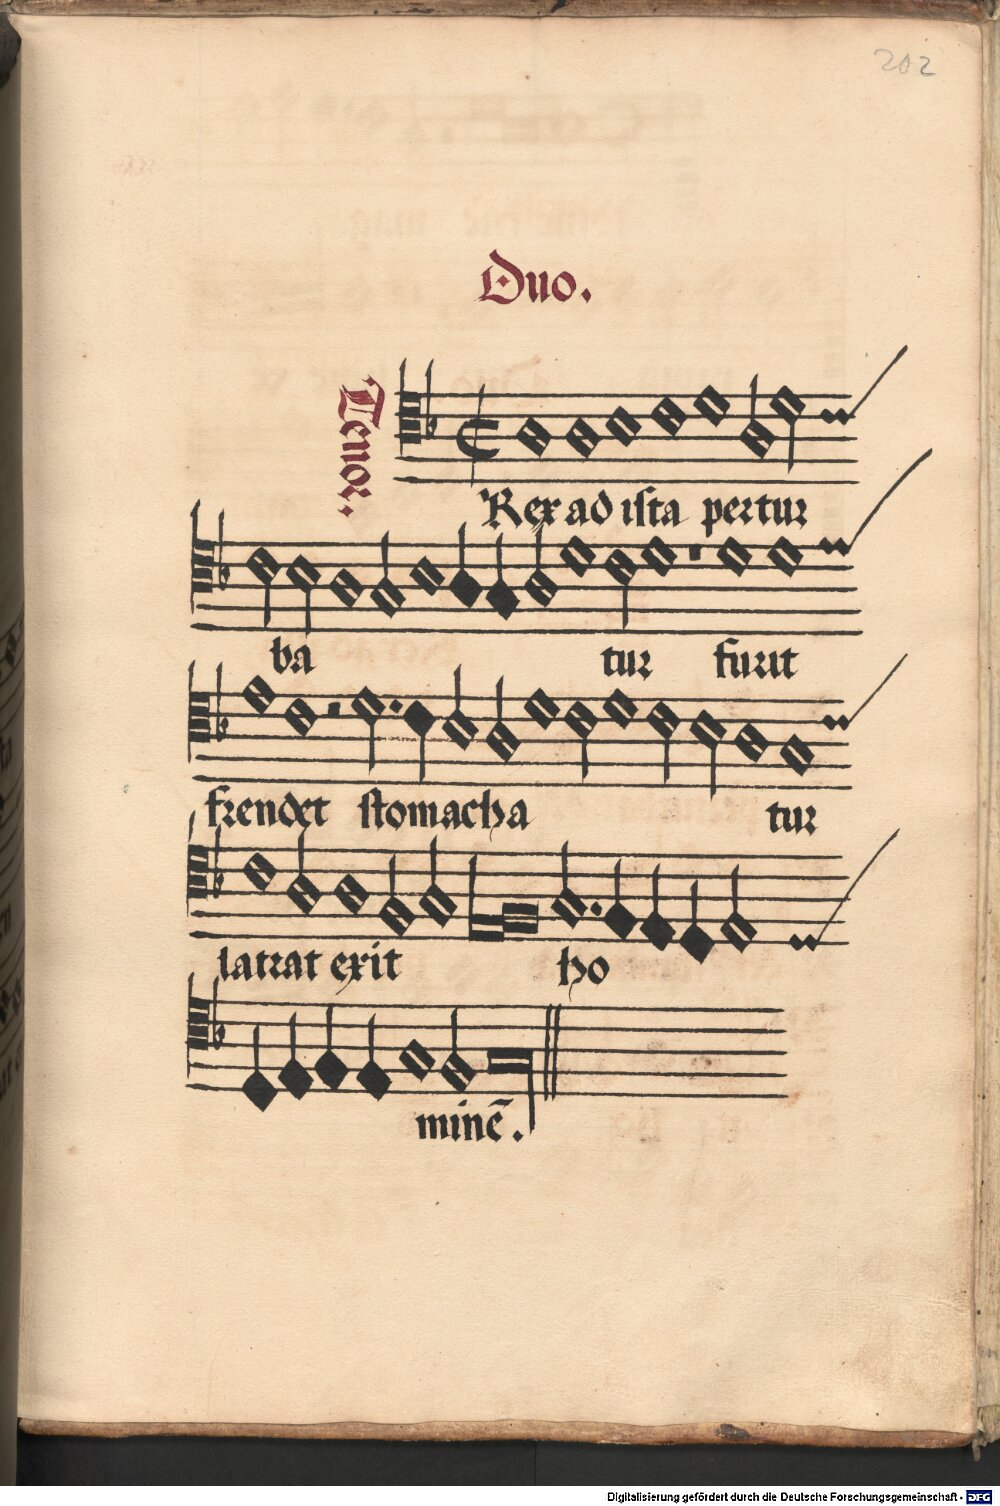 202
Duo.
Tenor.
Rex ad ista pertur
ba tur furit
frendet stomacha tur
latrat exit ho
minē.
Digitalisierung gefördert durch die Deutsche Forschungsgemeinschaft - DFG